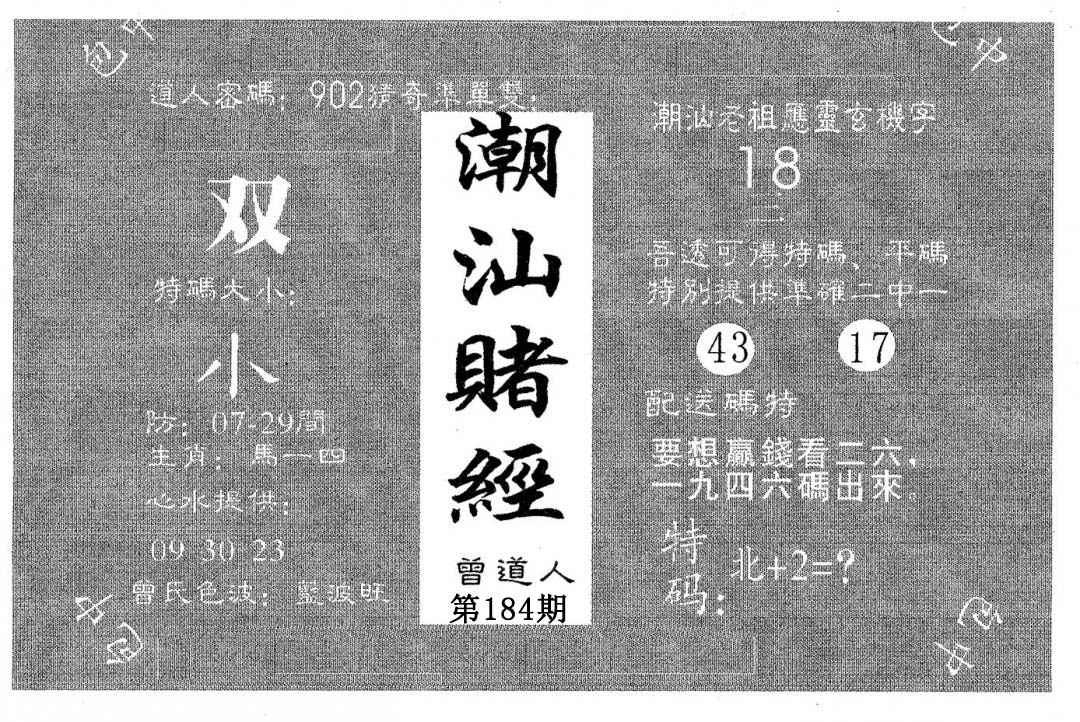 包中
包中
道人密碼：902猜奇準單雙：
双
特碼大小：
小
防：07-29間
生肖：馬一四
心水提供：
09 30 23
曾氏色波：藍波旺
潮
汕
賭
經
曾道人
第184期
潮汕老祖應靈玄機字
18
二
吾透可得特碼、平碼
特別提供準確二中一
43 17
配送碼特
要想贏錢看二六，
一九四六碼出來。
特
码：
北+2=?
包中
包中